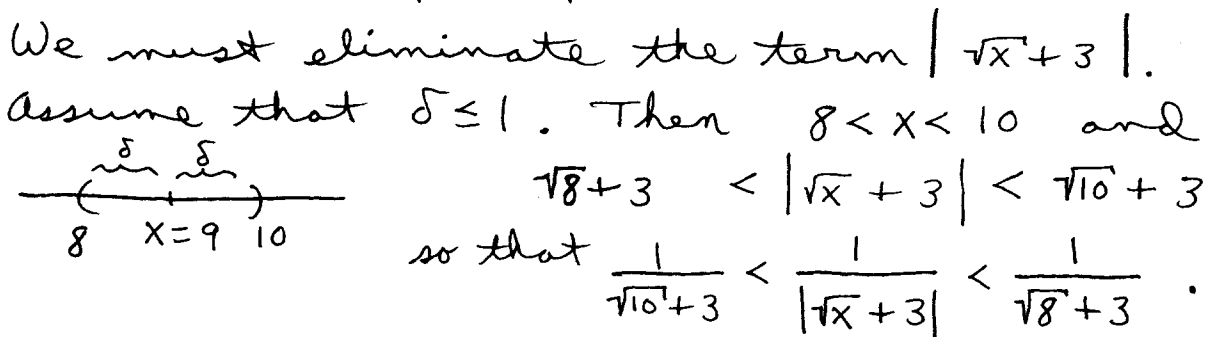 We must eliminate the term | √x + 3 |.
Assume that δ ≤ 1. Then 8 < x < 10 and
δ δ
8 x = 9 10
√8 + 3 < | √x + 3 | < √10 + 3
so that 1/(√10 + 3) < 1/|√x + 3| < 1/(√8 + 3) .